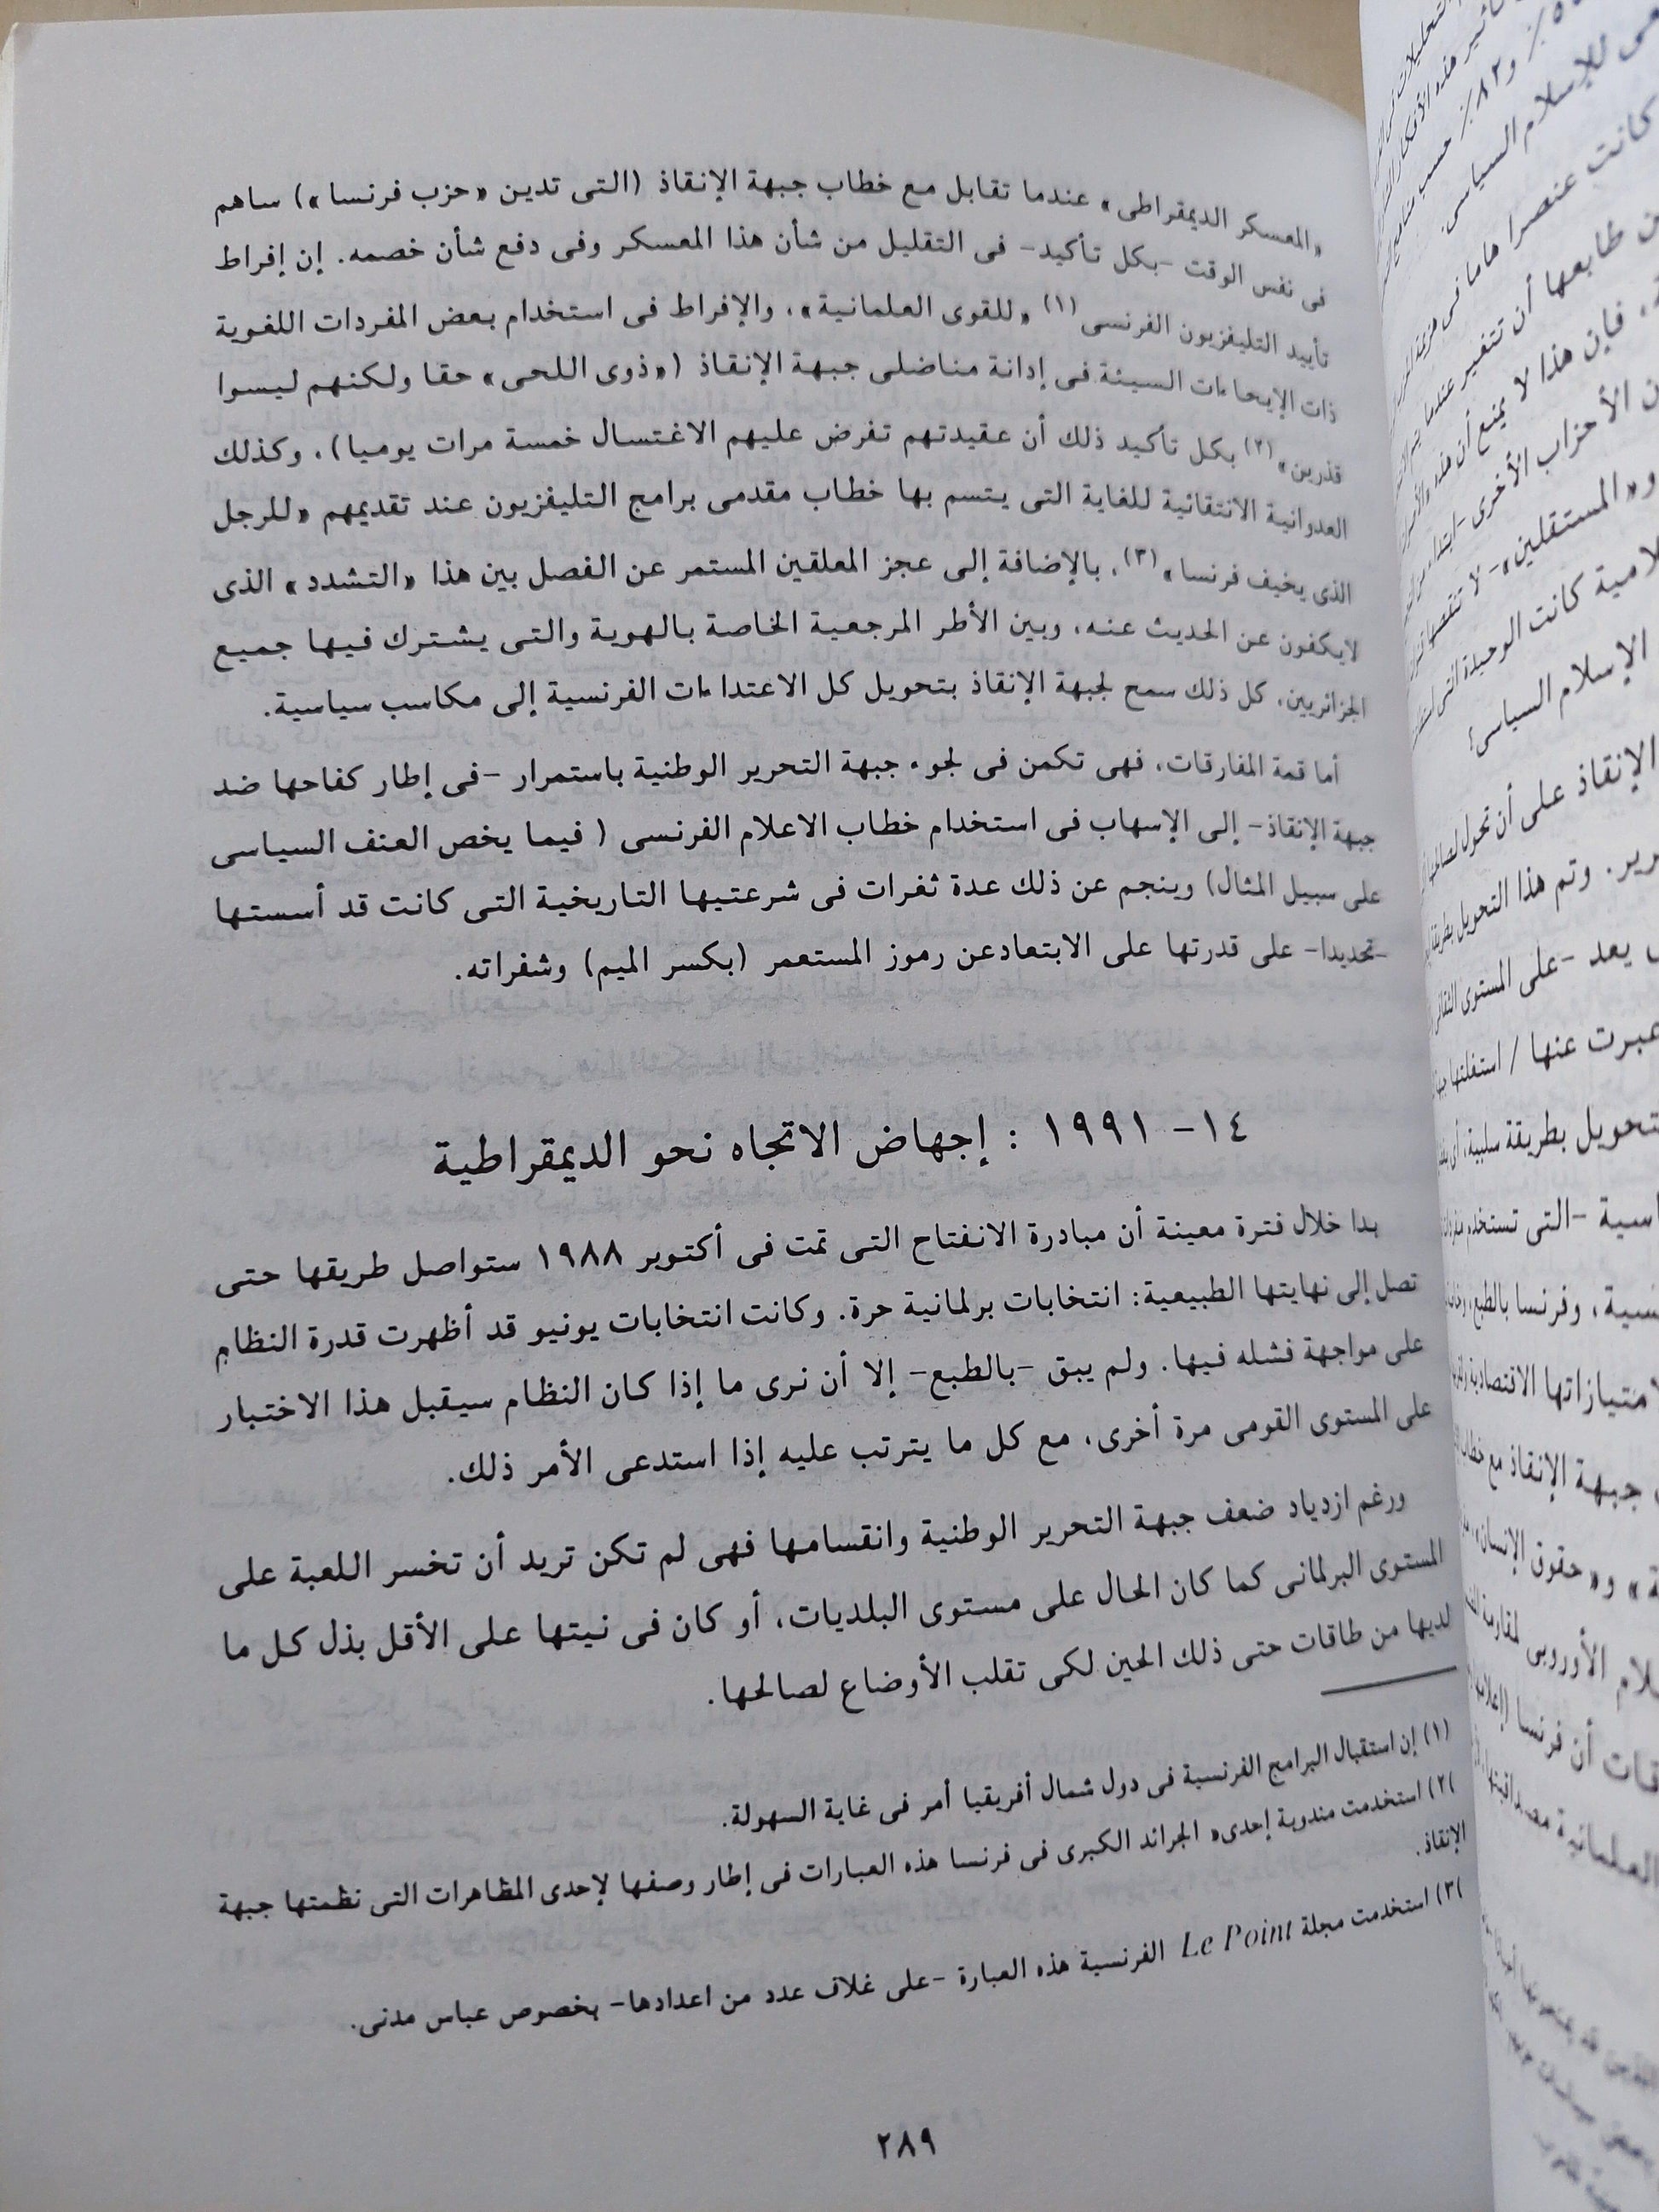 «المعسكر الديمقراطى» عندما تقابل مع خطاب جبهة الإنقاذ (التى تدين «حزب فرنسا») ساهم
فى نفس الوقت -بكل تأكيد- فى التقليل من شأن هذا المعسكر وفى دفع شأن خصمه. إن إفراط
تأييد التليفزيون الفرنسى(١) «للقوى العلمانية»، والإفراط فى استخدام بعض المفردات اللغوية
ذات الإيحاءات السيئة فى إدانة مناضلى جبهة الإنقاذ («ذوى اللحى» حقا ولكنهم ليسوا
قذرين»(٢) بكل تأكيد ذلك أن عقيدتهم تفرض عليهم الاغتسال خمسة مرات يوميا)، وكذلك
العدوانية الانتقائية للغاية التى يتسم بها خطاب مقدمى برامج التليفزيون عند تقديمهم «للرجل
الذى يخيف فرنسا»(٣)، بالإضافة إلى عجز المعلقين المستمر عن الفصل بين هذا «التشدد» الذى
لايكفون عن الحديث عنه، وبين الأطر المرجعية الخاصة بالهوية والتى يشترك فيها جميع
الجزائريين، كل ذلك سمح لجبهة الإنقاذ بتحويل كل الاعتداءات الفرنسية إلى مكاسب سياسية.
أما قمة المفارقات، فهى تكمن فى لجوء جبهة التحرير الوطنية باستمرار -فى إطار كفاحها ضد
جبهة الإنقاذ- إلى الإسهاب فى استخدام خطاب الاعلام الفرنسى ( فيما يخص العنف السياسى
على سبيل المثال) وينجم عن ذلك عدة ثغرات فى شرعتيها التاريخية التى كانت قد أسستها
-تحديدا- على قدرتها على الابتعادعن رموز المستعمر (بكسر الميم) وشفراته.
١٤- ١٩٩١ : إجهاض الاتجاه نحو الديمقراطية
بدا خلال فترة معينة أن مبادرة الانفتاح التى تمت فى أكتوبر ١٩٨٨ ستواصل طريقها حتى
تصل إلى نهايتها الطبيعية: انتخابات برلمانية حرة. وكانت انتخابات يونيو قد أظهرت قدرة النظام
على مواجهة فشله فيها. ولم يبق -بالطبع- إلا أن نرى ما إذا كان النظام سيقبل هذا الاختبار
على المستوى القومى مرة أخرى، مع كل ما يترتب عليه إذا استدعى الأمر ذلك.
ورغم ازدياد ضعف جبهة التحرير الوطنية وانقسامها فهى لم تكن تريد أن تخسر اللعبة على
المستوى البرلمانى كما كان الحال على مستوى البلديات، أو كان فى نيتها على الأقل بذل كل ما
لديها من طاقات حتى ذلك الحين لكى تقلب الأوضاع لصالحها.
(١) إن استقبال البرامج الفرنسية فى دول شمال أفريقيا أمر فى غاية السهولة.
)٢) استخدمت مندوبة إحدى« الجرائد الكبرى فى فرنسا هذه العبارات فى إطار وصفها لإحدى المظاهرات التى نظمتها جبهة
الإنقاذ.
)٣) استخدمت مجلة Le Point الفرنسية هذه العبارة -على غلاف عدد من اعدادها- بخصوص عباس مدنى.
٢٨٩